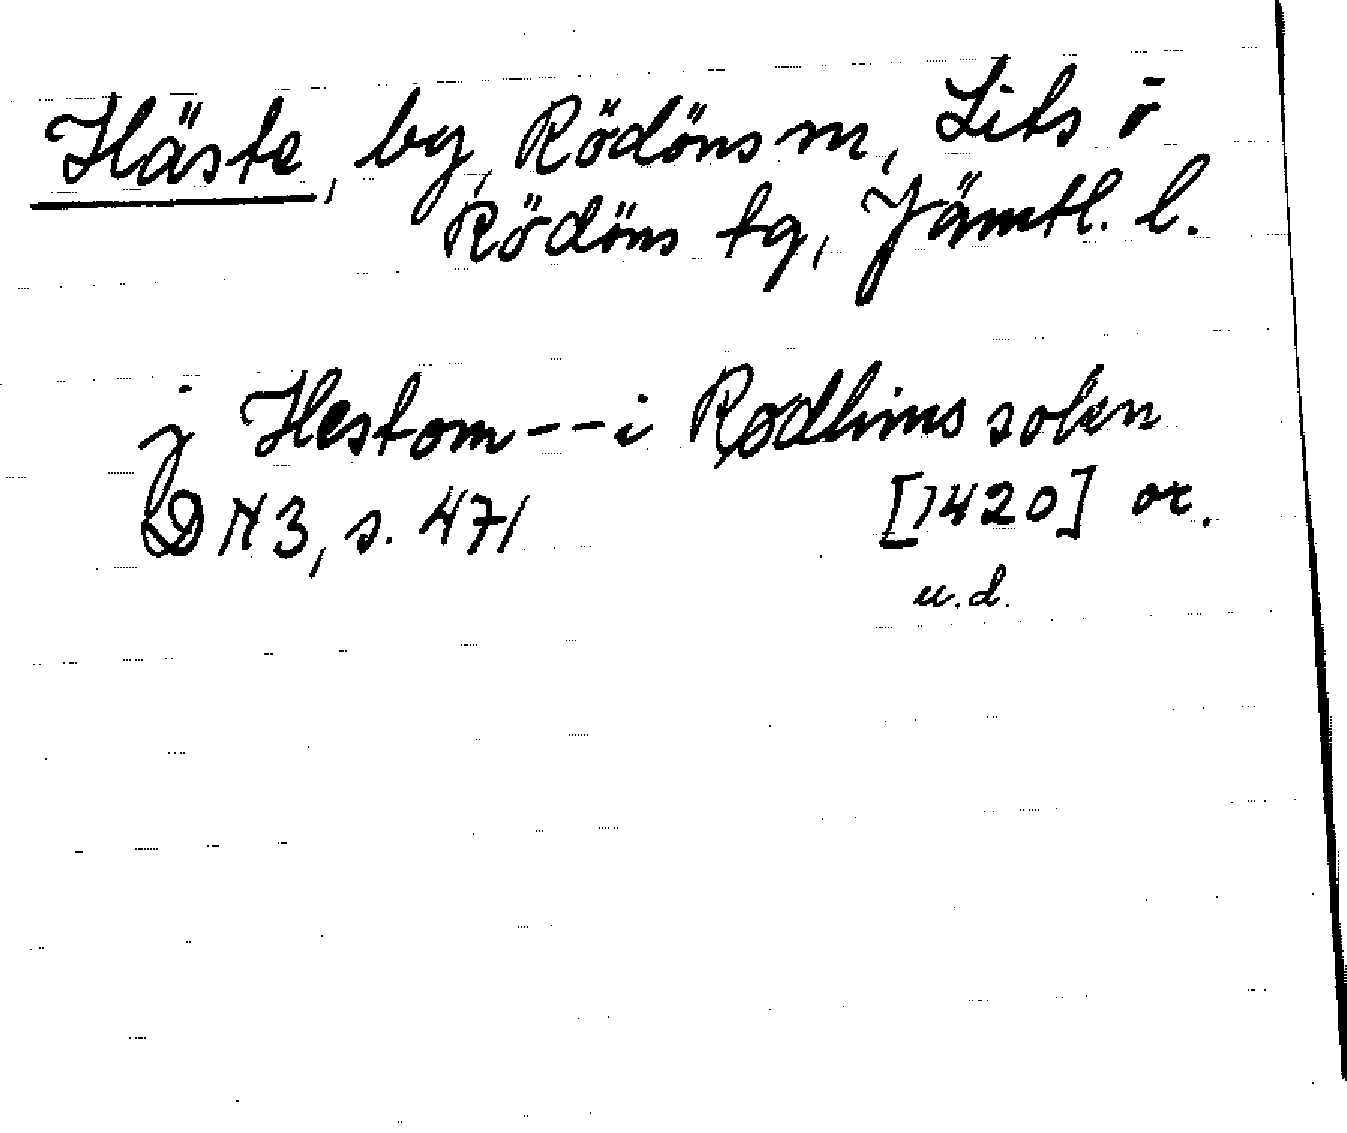 Häste, by, Rödöns sn, Lits o
Rödöns tg, Jämtl. l.
j Hestom -- i Rødhins sokn
DN 3, s. 471 [1420] or.
u.d.